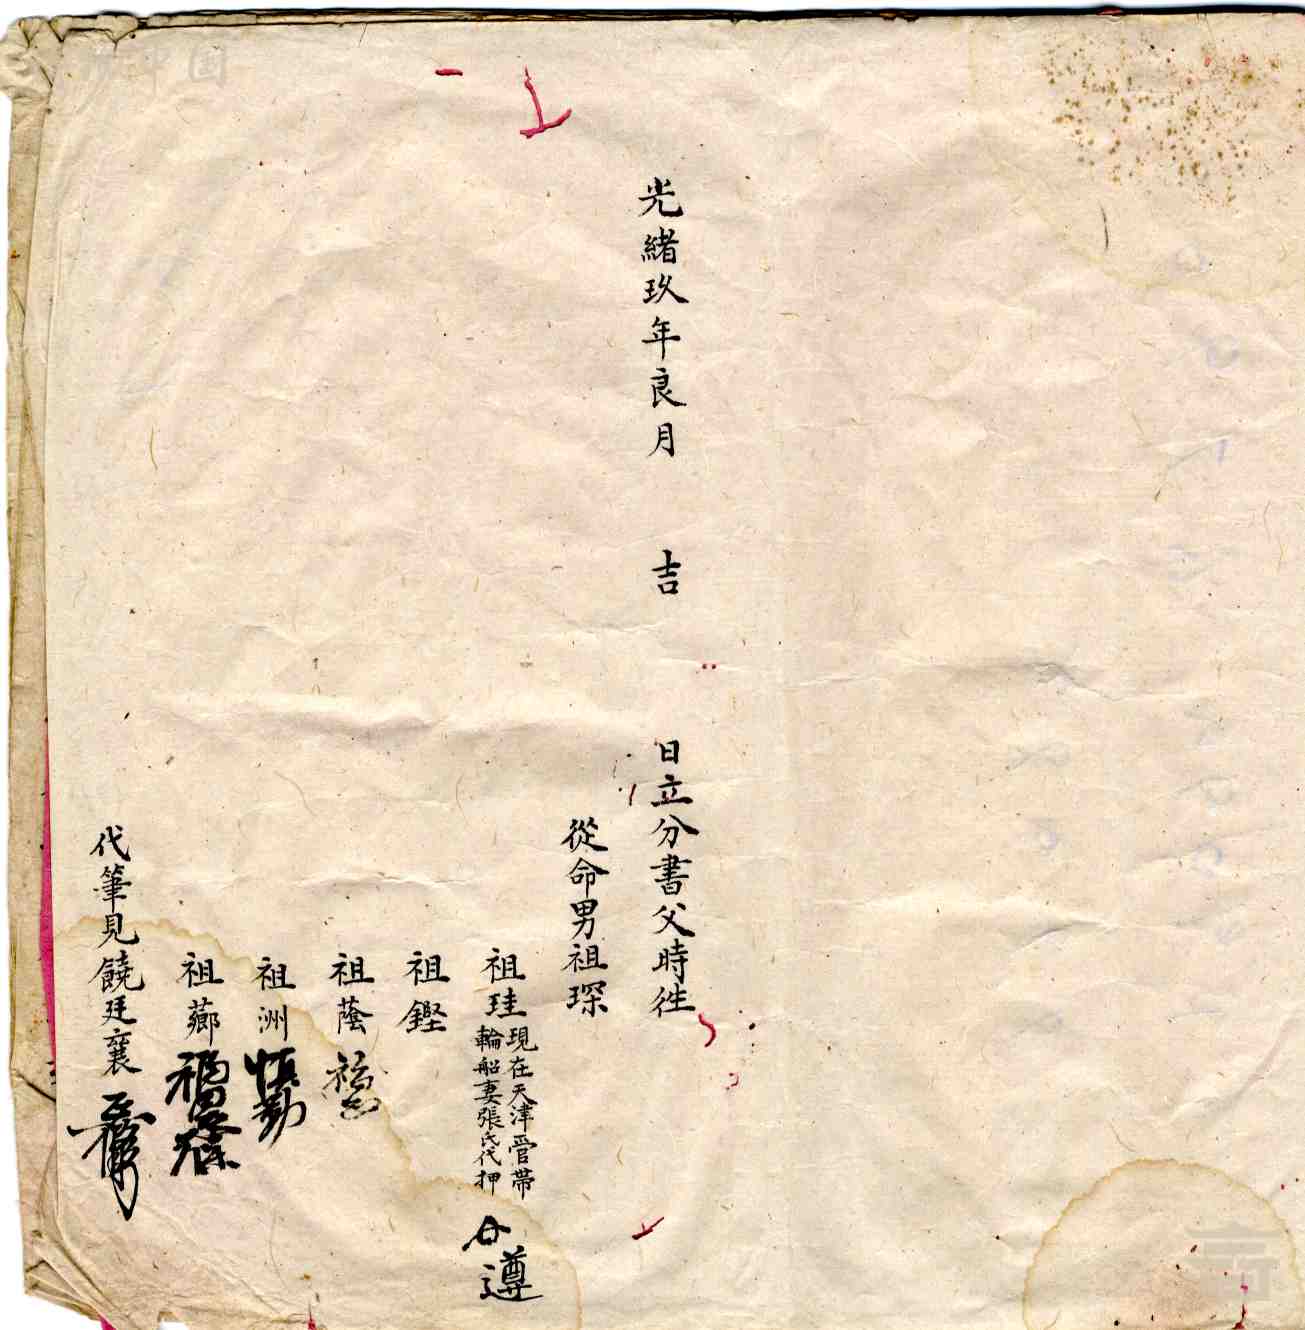 光緒玖年良月 吉 日立分書父時徃
從命男祖琛
祖珪
現在天津管帯
輪船妻張氏代押
遵
祖鏗
祖蔭
祖洲 慎勤
祖薌
代筆見饒廷襄
中国